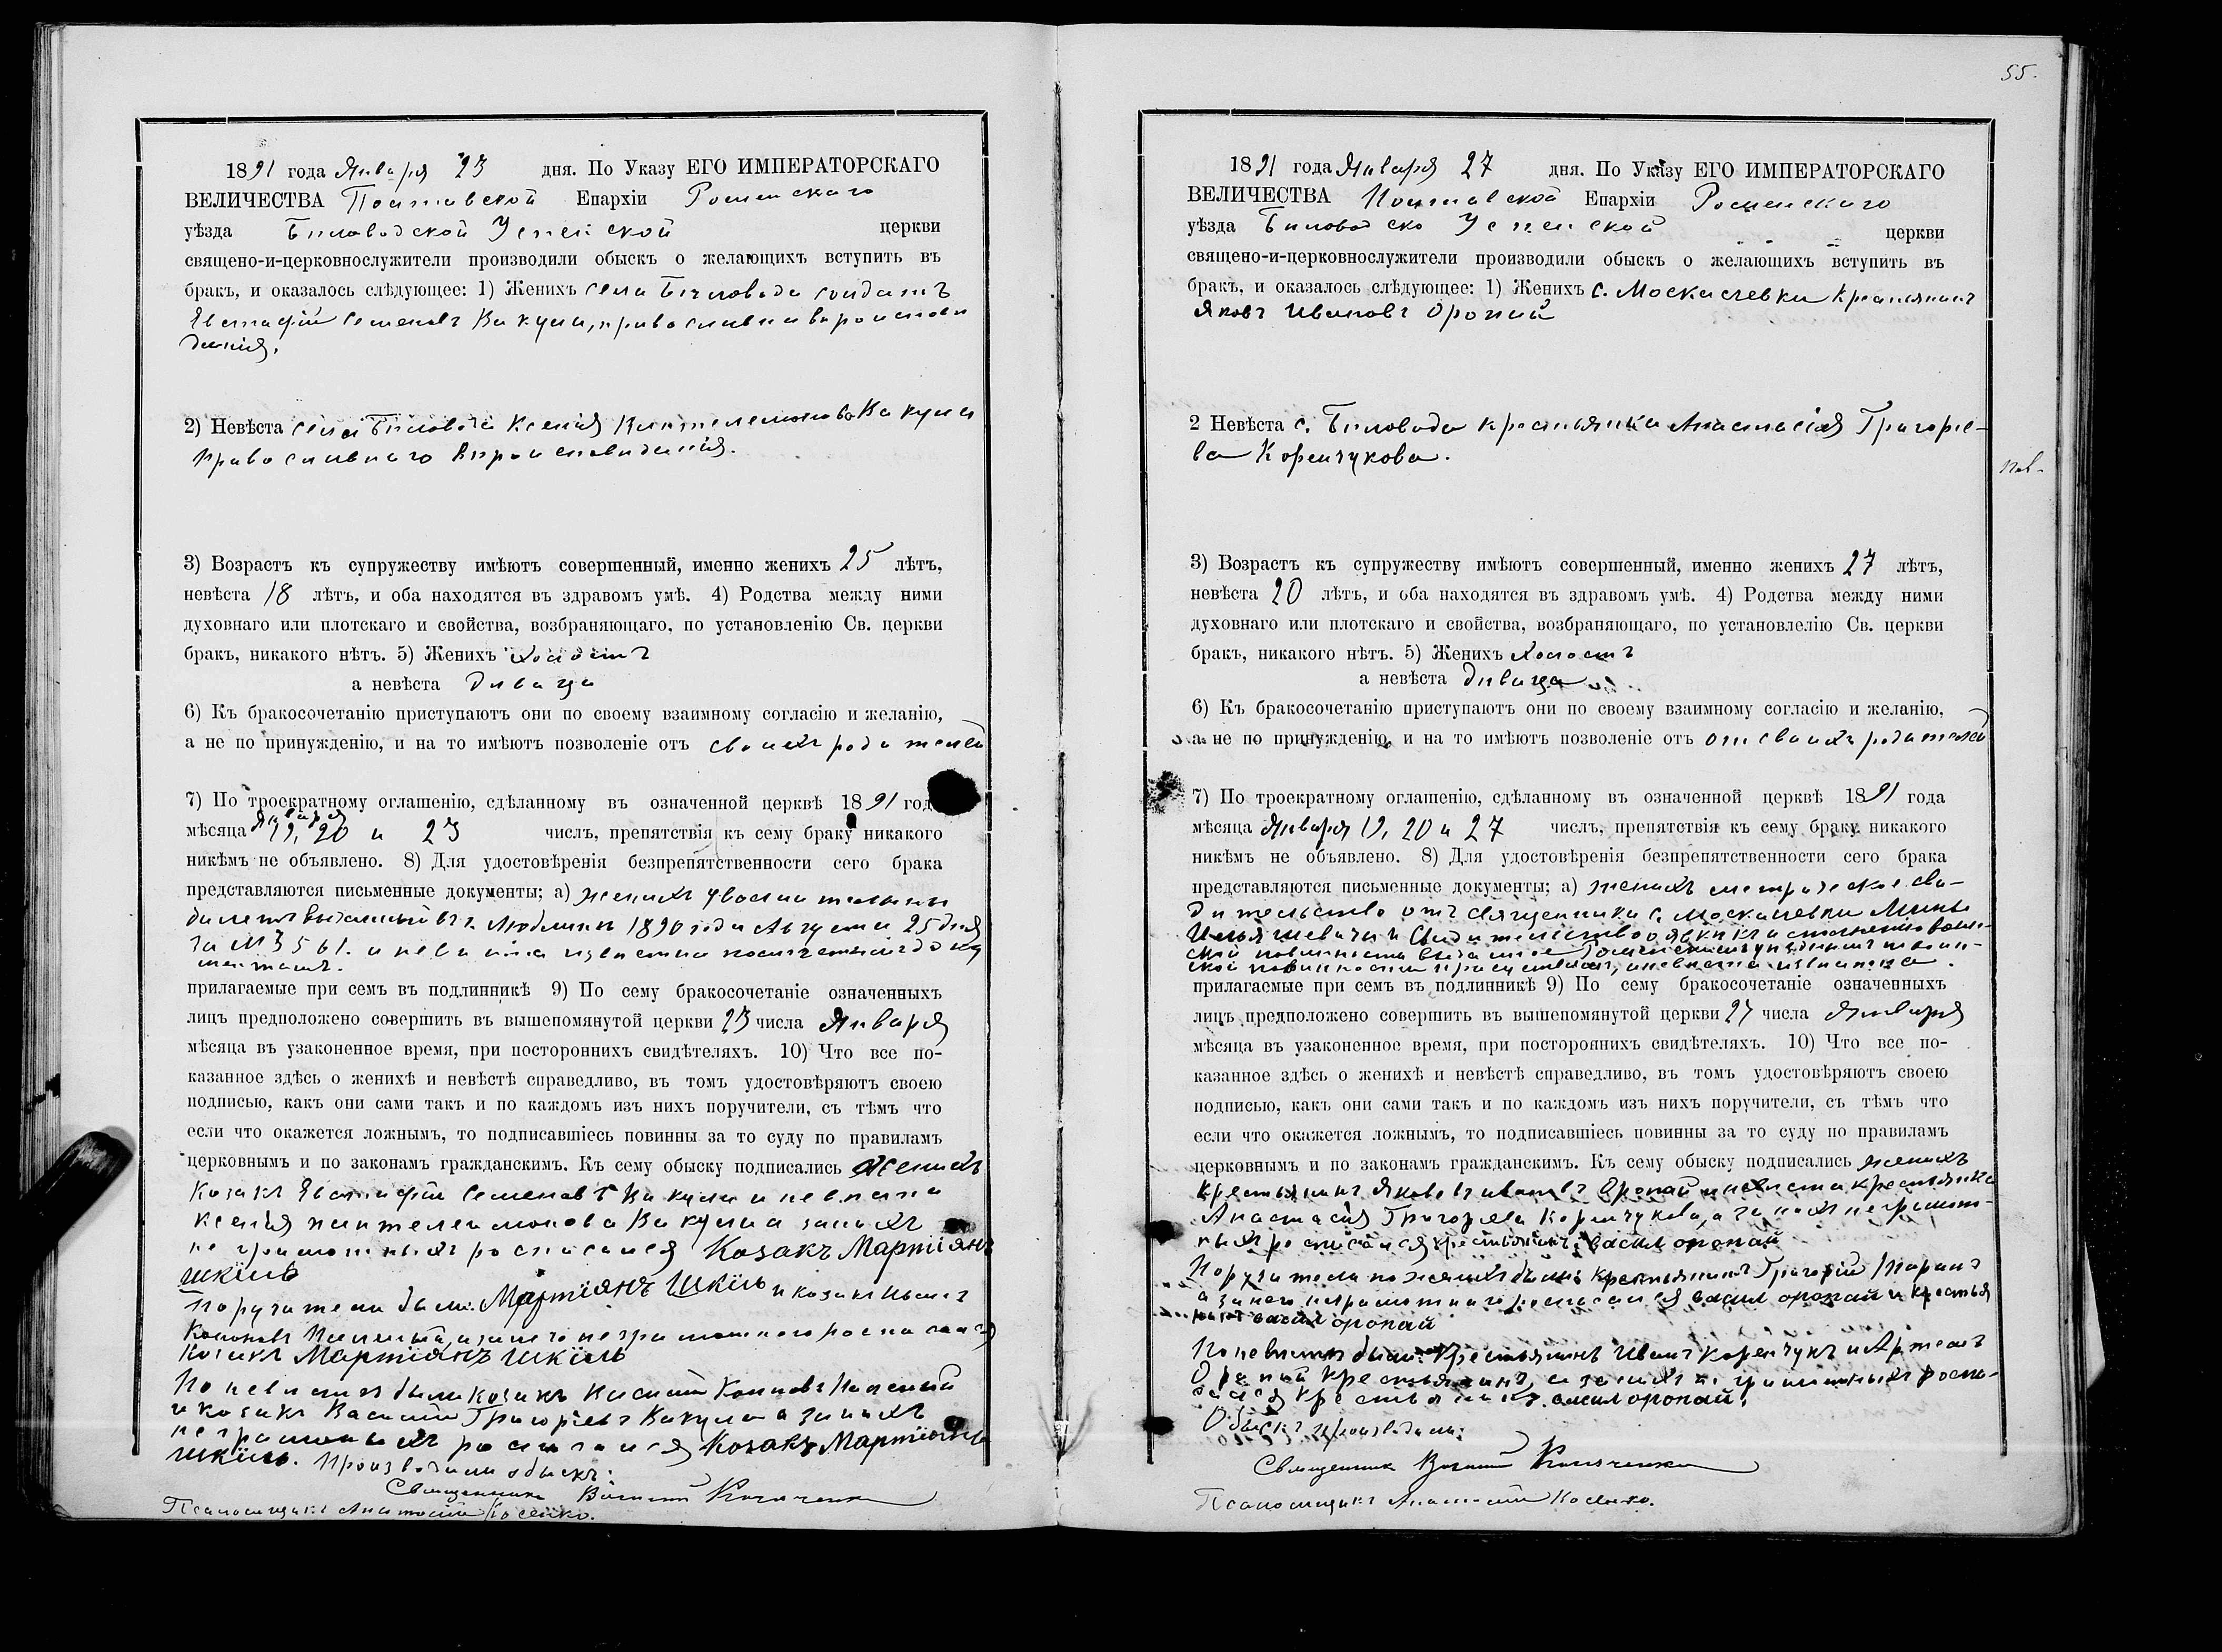 1891 года Января 23 дня. По Указу ЕГО ИМПЕРАТОРСКАГО
ВЕЛИЧЕСТВА Полтавской Епархіи Роменскаго
уѣзда Біловодской Успенской церкви
священо-и-церковнослужители производили обыскъ о желающихъ вступить въ
бракъ, и оказалось слѣдующее: 1) Женихъ села Біловода солдатъ
Евстафій Семеновъ Вакула, православнаго вѣроисповѣ
данія.
2) Невѣста села Біловода Ксенія Пантелеимонова Вакула
православнаго вѣроисповѣданія.
3) Возрастъ къ супружеству имѣютъ совершенный, именно женихъ 25 лѣтъ,
невѣста 18 лѣтъ, и оба находятся въ здравомъ умѣ. 4) Родства между ними
духовнаго или плотскаго и свойства, возбраняющаго, по установленію Св. церкви
бракъ, никакого нѣтъ. 5) Женихъ холостъ
а невѣста дѣвица
6) Къ бракосочетанію приступаютъ они по своему взаимному согласію и желанію,
а не по принужденію, и на то имѣютъ позволеніе отъ своихъ родителей
7) По троекратному оглашенію, сдѣланному въ означенной церквѣ 1891 год
мѣсяца Января 19, 20 и 23 числъ, препятствія къ сему браку никакого
никѣмъ не объявлено. 8) Для удостовѣренія безпрепятственности сего брака
представляются письменные документы; а) женихъ увольнительный
билетъ выданный въ г. Люблинѣ 1890 года Августа 25 дня
за № 3561. и невѣста извѣстна
прилагаемые при семъ въ подлинникѣ 9) По сему бракосочетаніе означенныхъ
лицъ предположено совершить въ вышепомянутой церкви 23 числа Января
мѣсяца въ узаконенное время, при постороннихъ свидѣтеляхъ. 10) Что все по-
казанное здѣсь о женихѣ и невѣстѣ справедливо, въ томъ удостовѣряютъ своею
подписью, какъ они сами такъ и по каждомъ изъ нихъ поручители, съ тѣмъ что
если что окажется ложнымъ, то подписавшіесь повинны за то суду по правиламъ
церковнымъ и по законамъ гражданскимъ. Къ сему обыску подписались женихъ
Козакъ Евстафій Семеновъ Вакула и невѣста
Ксенія Пантелеимонова Вакула а за нихъ
неграмотныхъ росписался Козакъ Мартіянъ
Шкіль
Поручители были: Мартіянъ Шкіль и козакъ Иванъ
Кононовъ а за него неграмотнаго росписался
Козакъ Мартіянъ Шкіль
По невѣстѣ были козакъ
и козакъ Василій Григорьевъ Вакула а за нихъ
неграмотныхъ росписался Козакъ Мартіянъ
Шкіль. Производили обыскъ:
Священникъ Василій
Псаломщикъ Анатолій Косенко.
55.
1891 года Января 27 дня. По Указу ЕГО ИМПЕРАТОРСКАГО
ВЕЛИЧЕСТВА Полтавской Епархіи Роменскаго
уѣзда Біловодско Успенской церкви
священо-и-церковнослужители производили обыскъ о желающихъ вступить въ
бракъ, и оказалось слѣдующее: 1) Женихъ с. Москалевки крестьянинъ
Яковъ Ивановъ Оропай
2 Невѣста с. Біловода крестьянка Анастасія Григорье-
ва Коренчукова.
3) Возрастъ къ супружеству имѣютъ совершенный, именно женихъ 27 лѣтъ,
невѣста 20 лѣтъ, и оба находятся въ здравомъ умѣ. 4) Родства между ними
духовнаго или плотскаго и свойства, возбраняющаго, по установлелію Св. церкви
бракъ, никакого нѣтъ. 5) Женихъ холостъ
а невѣста дѣвица
6) Къ бракосочетанію приступаютъ они по своему взаимному согласію и желанію,
а не по принужденію, и на то имѣютъ позволеніе отъ отъ своихъ родителей
7) По троекратному оглашенію, сдѣланному въ означенной церквѣ 1891 года
мѣсяца Января 19, 20 и 27 числъ, препятствія къ сему браку никакого
никѣмъ не объявлено. 8) Для удостовѣренія безпрепятственности сего брака
представляются письменные документы; а) женихъ метрическое сви-
дительство отъ священника с. Москалевки
и свидительство о явкѣ къ исполненію воин-
ской повинности выданное Роменскимъ уѣзднымъ по воин-
ской повинности присутствіемъ, а невѣста извѣстна.
прилагаемые при семъ въ подлинникѣ 9) По сему бракосочетаніе означенныхъ
лицъ предположено совершить въ вышепомянутой церкви 27 числа Января
мѣсяца въ узаконенное время, при постороннихъ свидѣтеляхъ. 10) Что все по-
казанное здѣсь о женихѣ и невѣстѣ справедливо, въ томъ удостовѣряютъ своею
подписью, какъ они сами такъ и по каждомъ изъ нихъ поручители, съ тѣмъ что
если что окажется ложнымъ, то подписавшіесь повинны за то суду по правиламъ
церковнымъ и по законамъ гражданскимъ. Къ сему обыску подписались женихъ
крестьянинъ Яковъ Ивановъ Оропай и невѣста крестьянка
Анастасія Григорьева Коренчукова, а за нихъ неграмот-
ныхъ росписался крестьянинъ васил оропай
Поручители по женихѣ были крестьянинъ Григорій
а за него неграмотнаго росписался васил оропай и крестья
нинъ васил оропай
По невѣстѣ были: крестьянинъ Иванъ Коренчукъ и Артемъ
Оропай крестьянинъ, а за нихъ неграмотныхъ роспи-
сался крестьянинъ васил оропай.
Обыскъ производили:
Священникъ Василій
Псаломщикъ Анатолій Косенко.